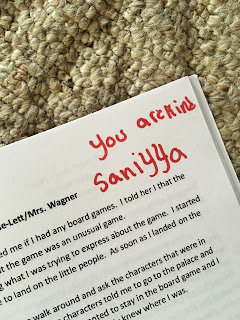 You are kind
saniyya
se-Lett/Mrs. Wagner
ed me if I had any board games. I told her I that the
t the game was an unusual game.
g what I was trying to express about the game. I started
e to land on the little people. As soon as I landed on the
walk around and ask the characters that were in
characters told me to go to the palace and
nted to stay in the board game and I
knew where I was.